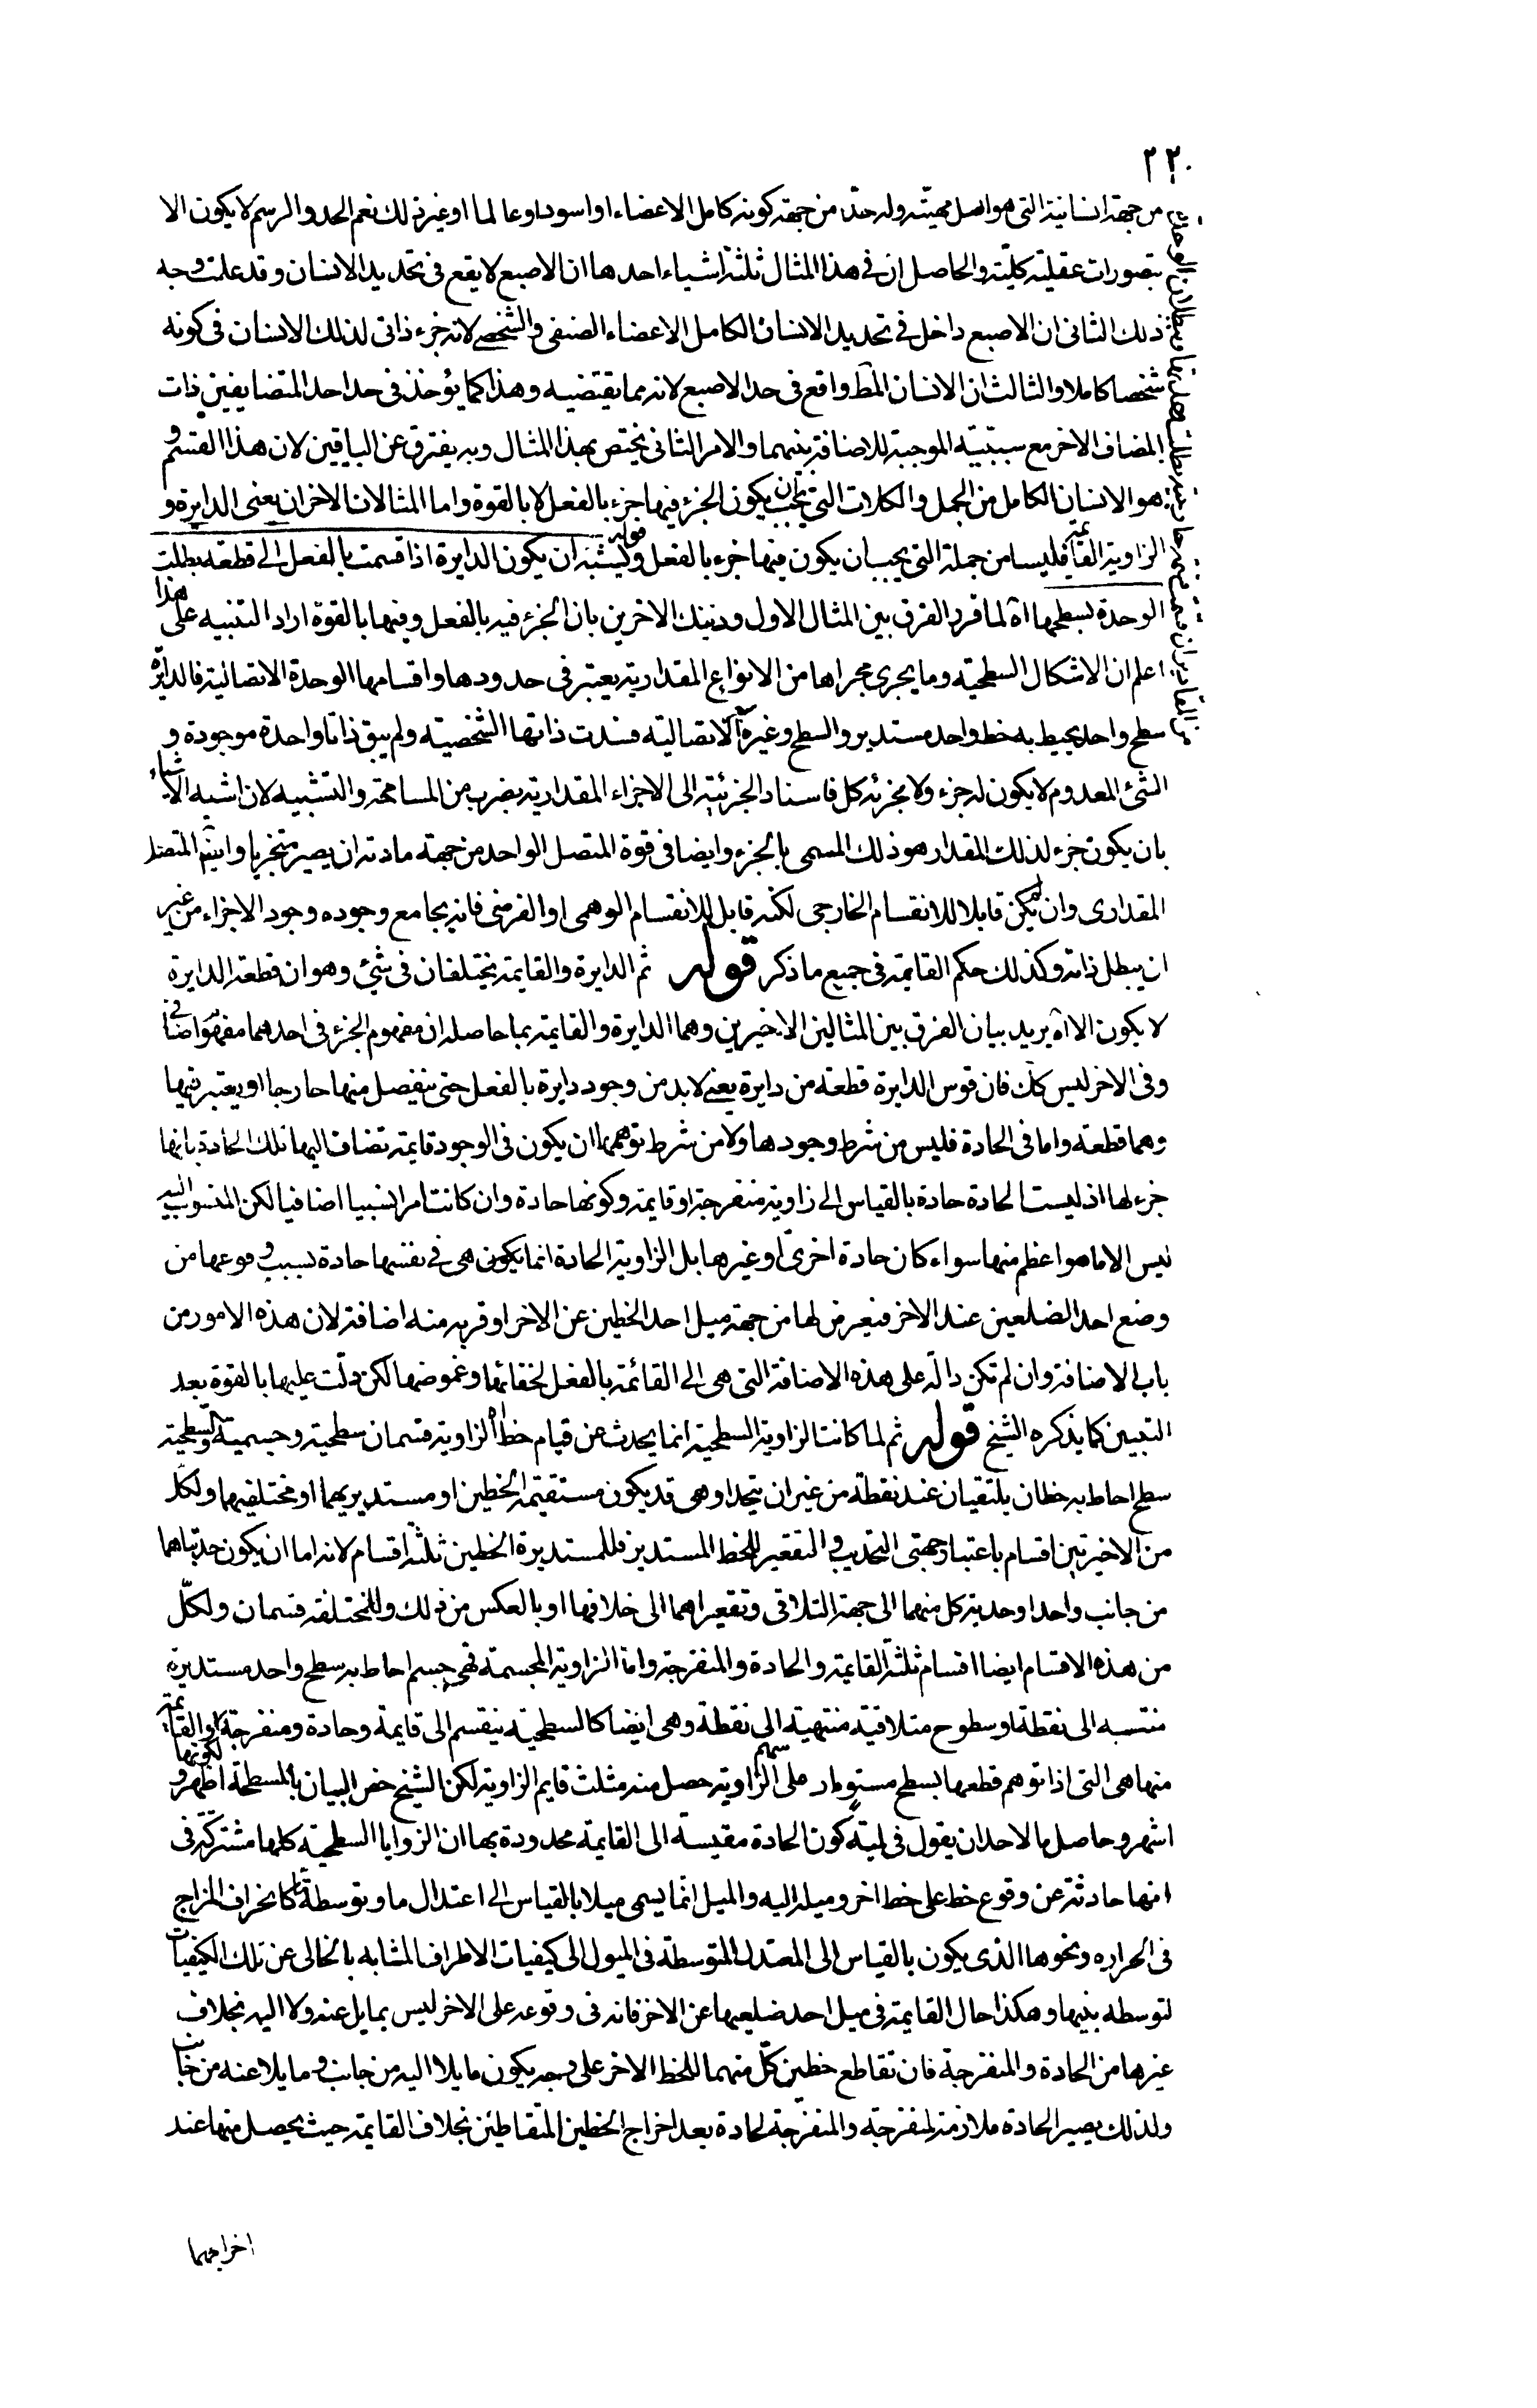 ٢٢٠
من جهة انسانية التى هو اصل مهيته وله حدّ من جهة كونه كامل الاعضاء او اسود او عالما او غير ذلك نعم الحد والرسم لا يكون الا
بتصورات عقلية كلية والحاصل ان فى هذا المثال ثلثة اشياء احدها ان الاصبع لا يقع فى تحديد الانسان وقد علمت وجه
ذلك الثانى ان الاصبع داخل فى تحديد الانسان الكامل الاعضاء الصنفى والشخصى لانه جزء ذاتى لذلك الانسان فى كونه
شخصا كاملا والثالث ان الانسان المط واقع فى حد الاصبع لانه مما يقتضيه وهذا كما يؤخذ فى حد احد المتضايفين ذات
المضاف الاخر مع سببيته الموجبة للاضافة بينهما والامر الثانى يختص بهذا المثال وبه يفترق عن الباقين لان هذا القسم و
هو الانسان الكامل من الجمل والكلات التى يجب ان يكون الجزء فيها جزء بالفعل لا بالقوة واما المثالان الاخران يعنى الدايرة و
الزاوية القايمة فليسا من جملة التى يجب ان يكون فيها جزء بالفعل قوله وليشبه ان يكون الدايرة اذا قسمت بالفعل الى قطعة بطلت
الوحدة لسطحها اه لما قرر الفرق بين المثال الاول وذينك الاخرين بان الجزء فيه بالفعل وفيها بالقوة اراد التنبيه على هذا
اعلم ان الاشكال السطحية وما يجرى مجراها من الانواع المقدارية يعتبر فى حدودها واقسامها الوحدة الاتصالية فالدايرة
سطح واحد يحيط به خط واحد مستدير والسطح وغيره الاتصالية فسدت ذاتها الشخصية ولم يبق ذاتا واحدة موجودة و
الشئ المعدوم لا يكون له جزء ولا لجزئه كل فاسناد الجزئية الى الاجزاء المقدارية بضرب من المسامحة والتشبيه لان اشبه الاشياء
بان يكون جزء لذلك المقدار هو ذلك المسمى بالجزء وايضا فى قوة المتصل الواحد من جهة مادته ان يصير متجزيا وايضا المتصل
المقدارى وان لم يكن قابلا للانقسام الخارجى لكنه قابل للانقسام الوهمى او الفرضى فانه يجامع وجوده وجود الاجزاء من غير
ان يبطل ذاته وكذلك حكم القايمة فى جميع ما ذكر قوله ثم الدايرة والقايمة يختلفان فى شئ وهو ان قطعة الدايرة
لا يكون الا اه يريد بيان الفرق بين المثالين الاخيرين وهما الدايرة والقايمة بما حاصله ان مفهوم الجزء فى احدهما مفهوم اضافى
وفى الاخر ليس كك فان قوس الدايرة قطعة من دايرة يعنى لا بد من وجود دايرة بالفعل حتى ينفصل منها خارجا او يعتبر فيها
وهما قطعة واما فى الحادة فليس من شرط وجودها ولا من شرط توهمها ان يكون فى الوجود قايمة تضاف اليها تلك الحادة بانها
جزء لها اذ ليست الحادة حادة بالقياس الى زاوية منفرجة او قايمة وكونها حادة وان كانت امرا نسبيا اضافيا لكن المنسوب اليه
ليس الا ما هو اعظم منها سواء كان حادة اخرى او غيرها بل الزاوية الحادة انما يكون هى فى نفسها حادة بسبب وقوعها من
وضع احد الضلعين عند الاخر فيعرض لها من جهة ميل احد الخطين عن الاخر او قربه منه اضافة لان هذه الامور من
باب الاضافة وان لم تكن دالة على هذه الاضافة التى هى الى القائمة بالفعل لخفائها وغموضها لكن دلّت عليها بالقوة بعد
التبيين كما يذكره الشيخ قوله ثم لما كانت الزاوية السطحية انما يحدث عن قيام خط اه الزاوية قسمان سطحية وجسمية والسطحية
سطح احاط به خطان يلتقيان عند نقطة من غير ان يتحدا وهى قد يكون مستقيمة الخطين او مستديريهما او مختلفيهما ولكل
من الاخيرتين اقسام باعتبار جهتى التحديب والتقعير للخط المستدير فللمستديرة الخطين ثلثة اقسام لانه اما ان يكون حدبتاهما
من جانب واحد او حدبة كل منهما الى جهة التلاقى وتقعيراهما الى خلافها او بالعكس من ذلك وللمختلفة قسمان ولكلّ
من هذه الاقسام ايضا اقسام ثلثة القايمة والحادة والمنفرجة واما الزاوية المجسمة فهى جسم احاط به سطح واحد مستديرة
منتسبه الى نقطة او سطوح متلاقية منتهية الى نقطة وهى ايضا كالسطحية ينقسم الى قايمة وحادة ومنفرجة والقايمة
منها هى التى اذا توهم قطعها بسطح مستو مار على سهم الزاوية حصل منه مثلث قايم الزاوية لكن الشيخ خص البيان بالمسطحة لكونها اظهر و
اشهر وحاصله لاحد ان يقول فى لمية كون الحادة مقيسة الى القايمة محدودة بها ان الزوايا السطحية كلها مشتركة فى
انها حادثة عن وقوع خط على خط اخر وميله اليه والميل انما يسمى ميلا بالقياس الى اعتدال ما وتوسطه كانحراف المزاج
فى الحراره ونحوها الذى يكون بالقياس الى المعتدل المتوسطة فى الميول الى كيفيات الاطراف المشابه بالخالى عن تلك الكيفيات
لتوسطه بينها وهكذا حال القايمة فى ميل احد ضلعيها عن الاخر فانه فى وقوعه على الاخر ليس بمايل عنه ولا اليه بخلاف
غيرها من الحادة والمنفرجة فان تقاطع خطين كلّ منهما للخط الاخر على وجه يكون مايلا اليه من جانب ومايلا عنه من جانب
ولذلك يصير الحادة ملازمة لمنفرجة والمنفرجة لحادة بعد اخراج الخطين المتقاطين بخلاف القايمة حيث يحصل منها عند
اخراجهما